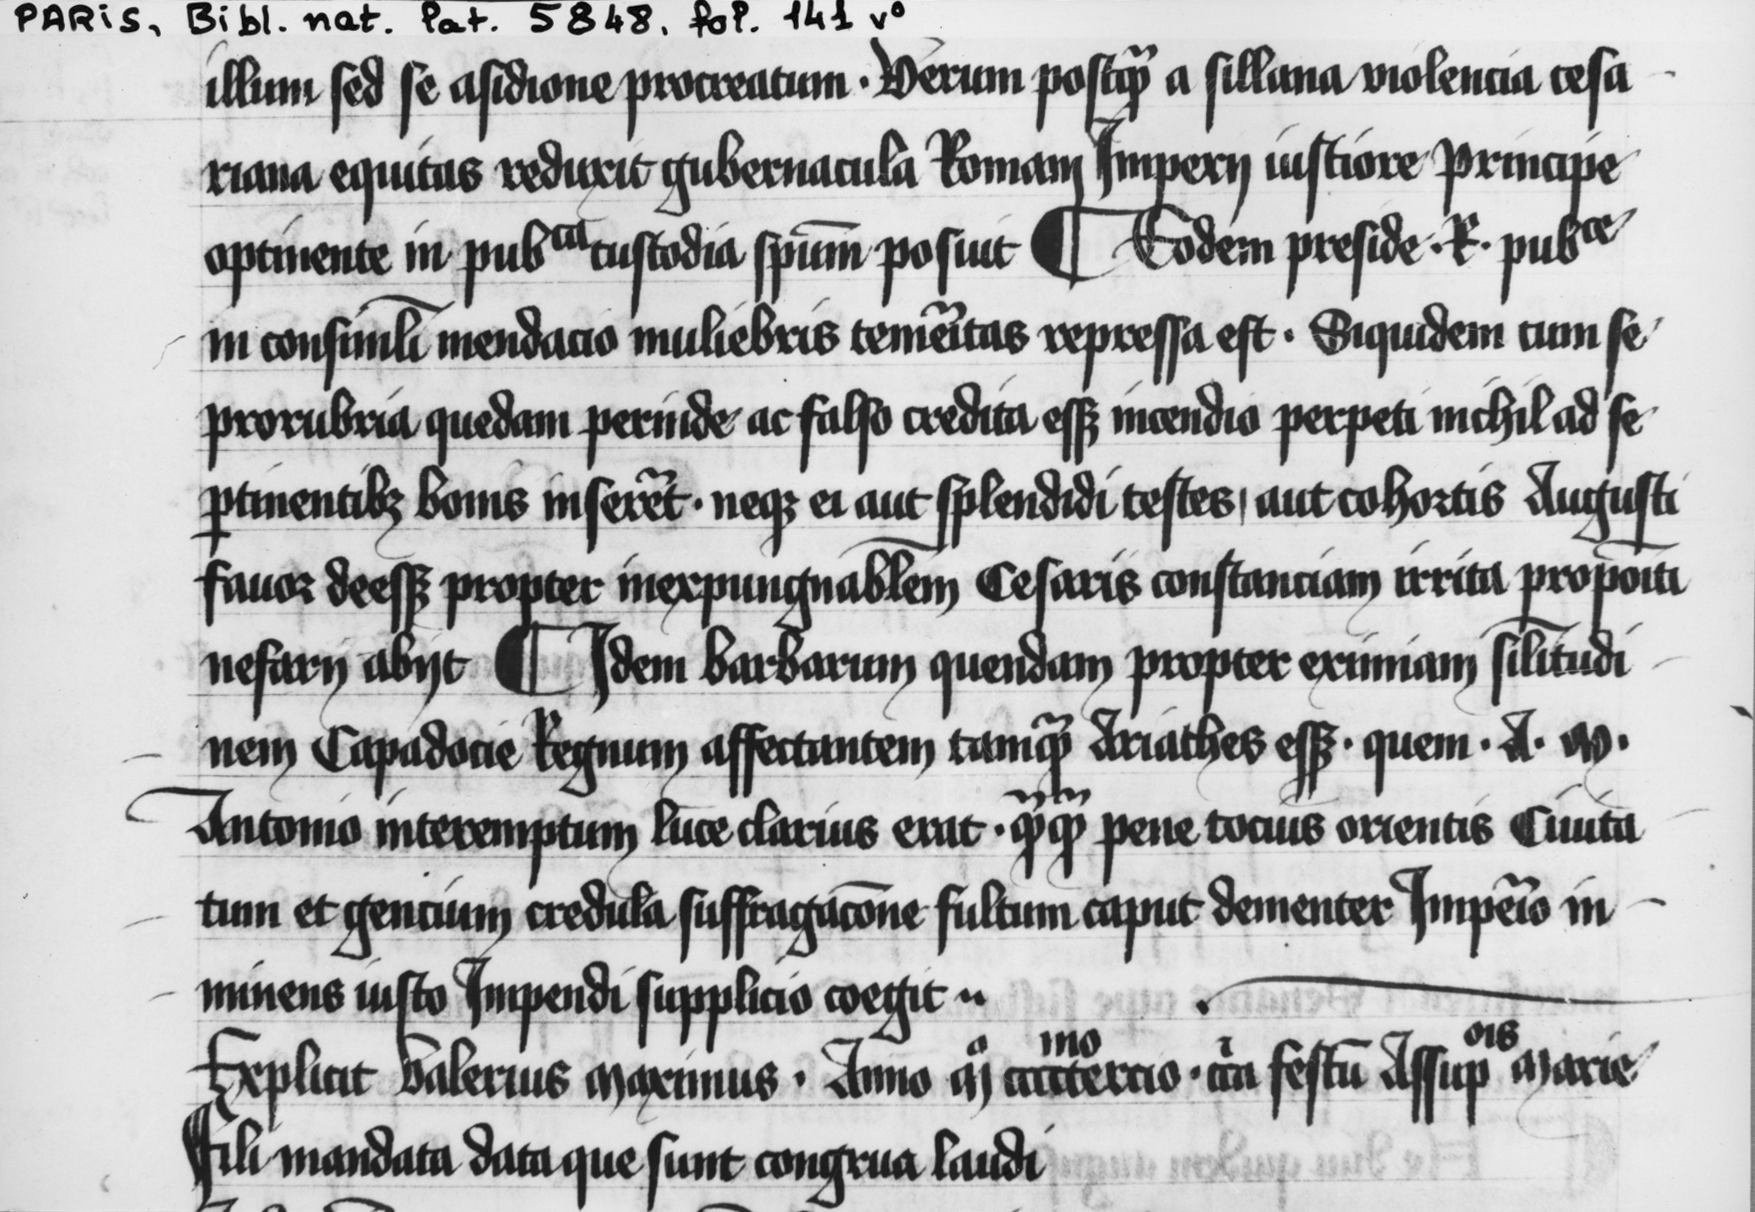 PARIS, Bibl. nat. lat. 5848, fol. 141 vo
illum sed se asidione procreatum · Verum postq̃ a sillana violencia cesa-
riana equitas reduxit gubernacula Romani Imperij iustiore principe
optinente in pubca custodia spiūm posuit ¶ Eodem preside · R · pubce
in consimili mendacio muliebris temēitas repressa est · Siquidem cum se
prorubria quedam perinde ac falso credita essꝫ incendio perpeti nichil ad se
ꝑtinentibꝫ bonis inserēt · neqꝫ ei aut splendidi testes / aut cohortis Augusti
favor deessꝫ propter inexpungnablēm Cesaris constanciam irrita propoīti
nefarij abijt ¶ Idem barbarum quendam propter eximiam silītudi-
nem Capadocie Regnum affectantem tamq̃ Ariathes essꝫ · quem · A · M ·
Antonio interemptum luce clarius erat · q̃q̃ pene tocius orientis Civita-
tum et gencium credula suffragacōne fultum caput dementer Impēio in-
minens iusto Impendi supplicio coegit ··
Explicit Valerius Maximus · Anno Mo cccc mo tercio · cīca festū Assupois Marie
Fili mandata data que sunt congrua laudi